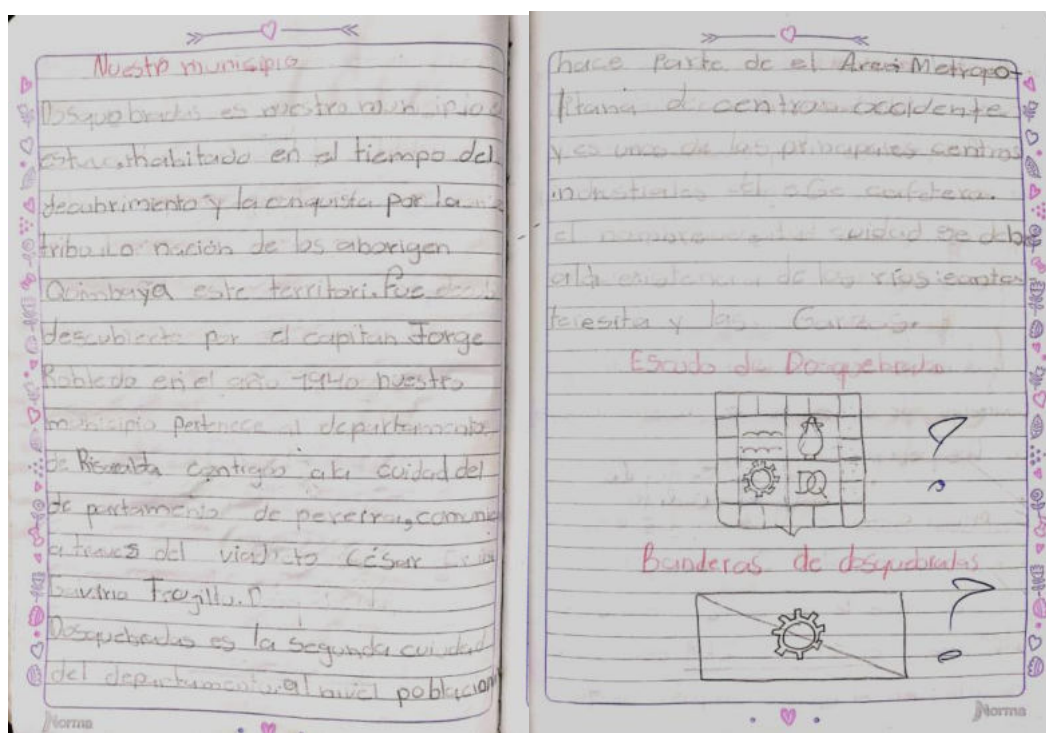 Nuestro municipio
Dosquebradas es nuestro municipio
habitado en el tiempo del
decubrimiento y la conquista por la
tribu lo nación de los aborigen
Quimbaya este territori. fue
descubierto por el capitan Jorge
Robledo en el año 1940 nuestro
municipio pertenece al departamento
de Risaralda contiguo a la cuidad del
de partamento de pereira, comunic
a traves del viaducto César
Gaviria Trugillo.
Dosquebradas es la segunda cuidad
del departamento. al nivel poblacion
Norma
hace parte de el Area Metropo-
litana d centro occidente
y es unco de los principales sentros
industriales el eje cafetera.
el nombre suidad se debe
a la existencia de los rios santa
teresita y las Garzas.
Escudo de Dosquebrada
DQ
?
Banderas de dosquebradas
?
Norma